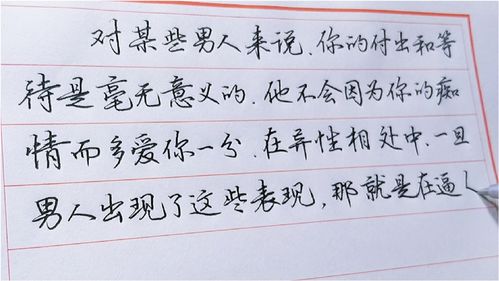 对某些男人来说，你的付出和等
待是毫无意义的，他不会因为你的痴
情而多爱你一分，在异性相处中，一旦
男人出现了这些表现，那就是在逼